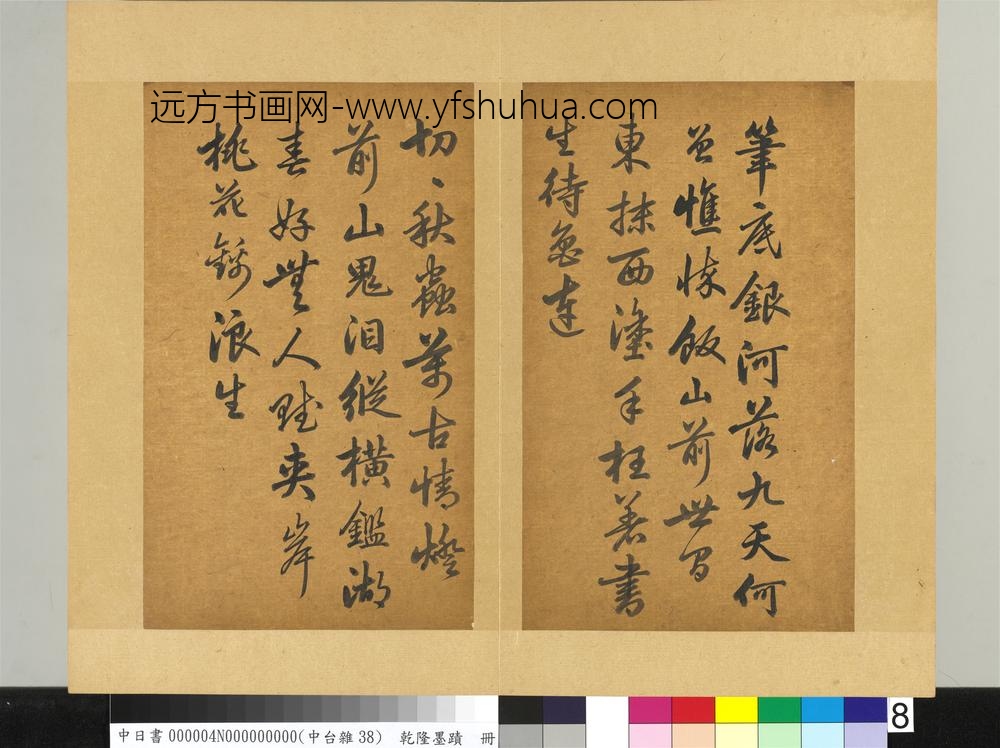 远方书画网-www.yfshuhua.com
筆底銀河落九天何
曾憔悴飯山前世間
東抹西塗手枉著書
生待魯連
切〻秋蟲萬古情燈
前山鬼泪縱橫鑑湖
春好無人賦夾岸
桃花錦浪生
8
中日書 000004N000000000(中台雜38) 乾隆墨蹟 冊